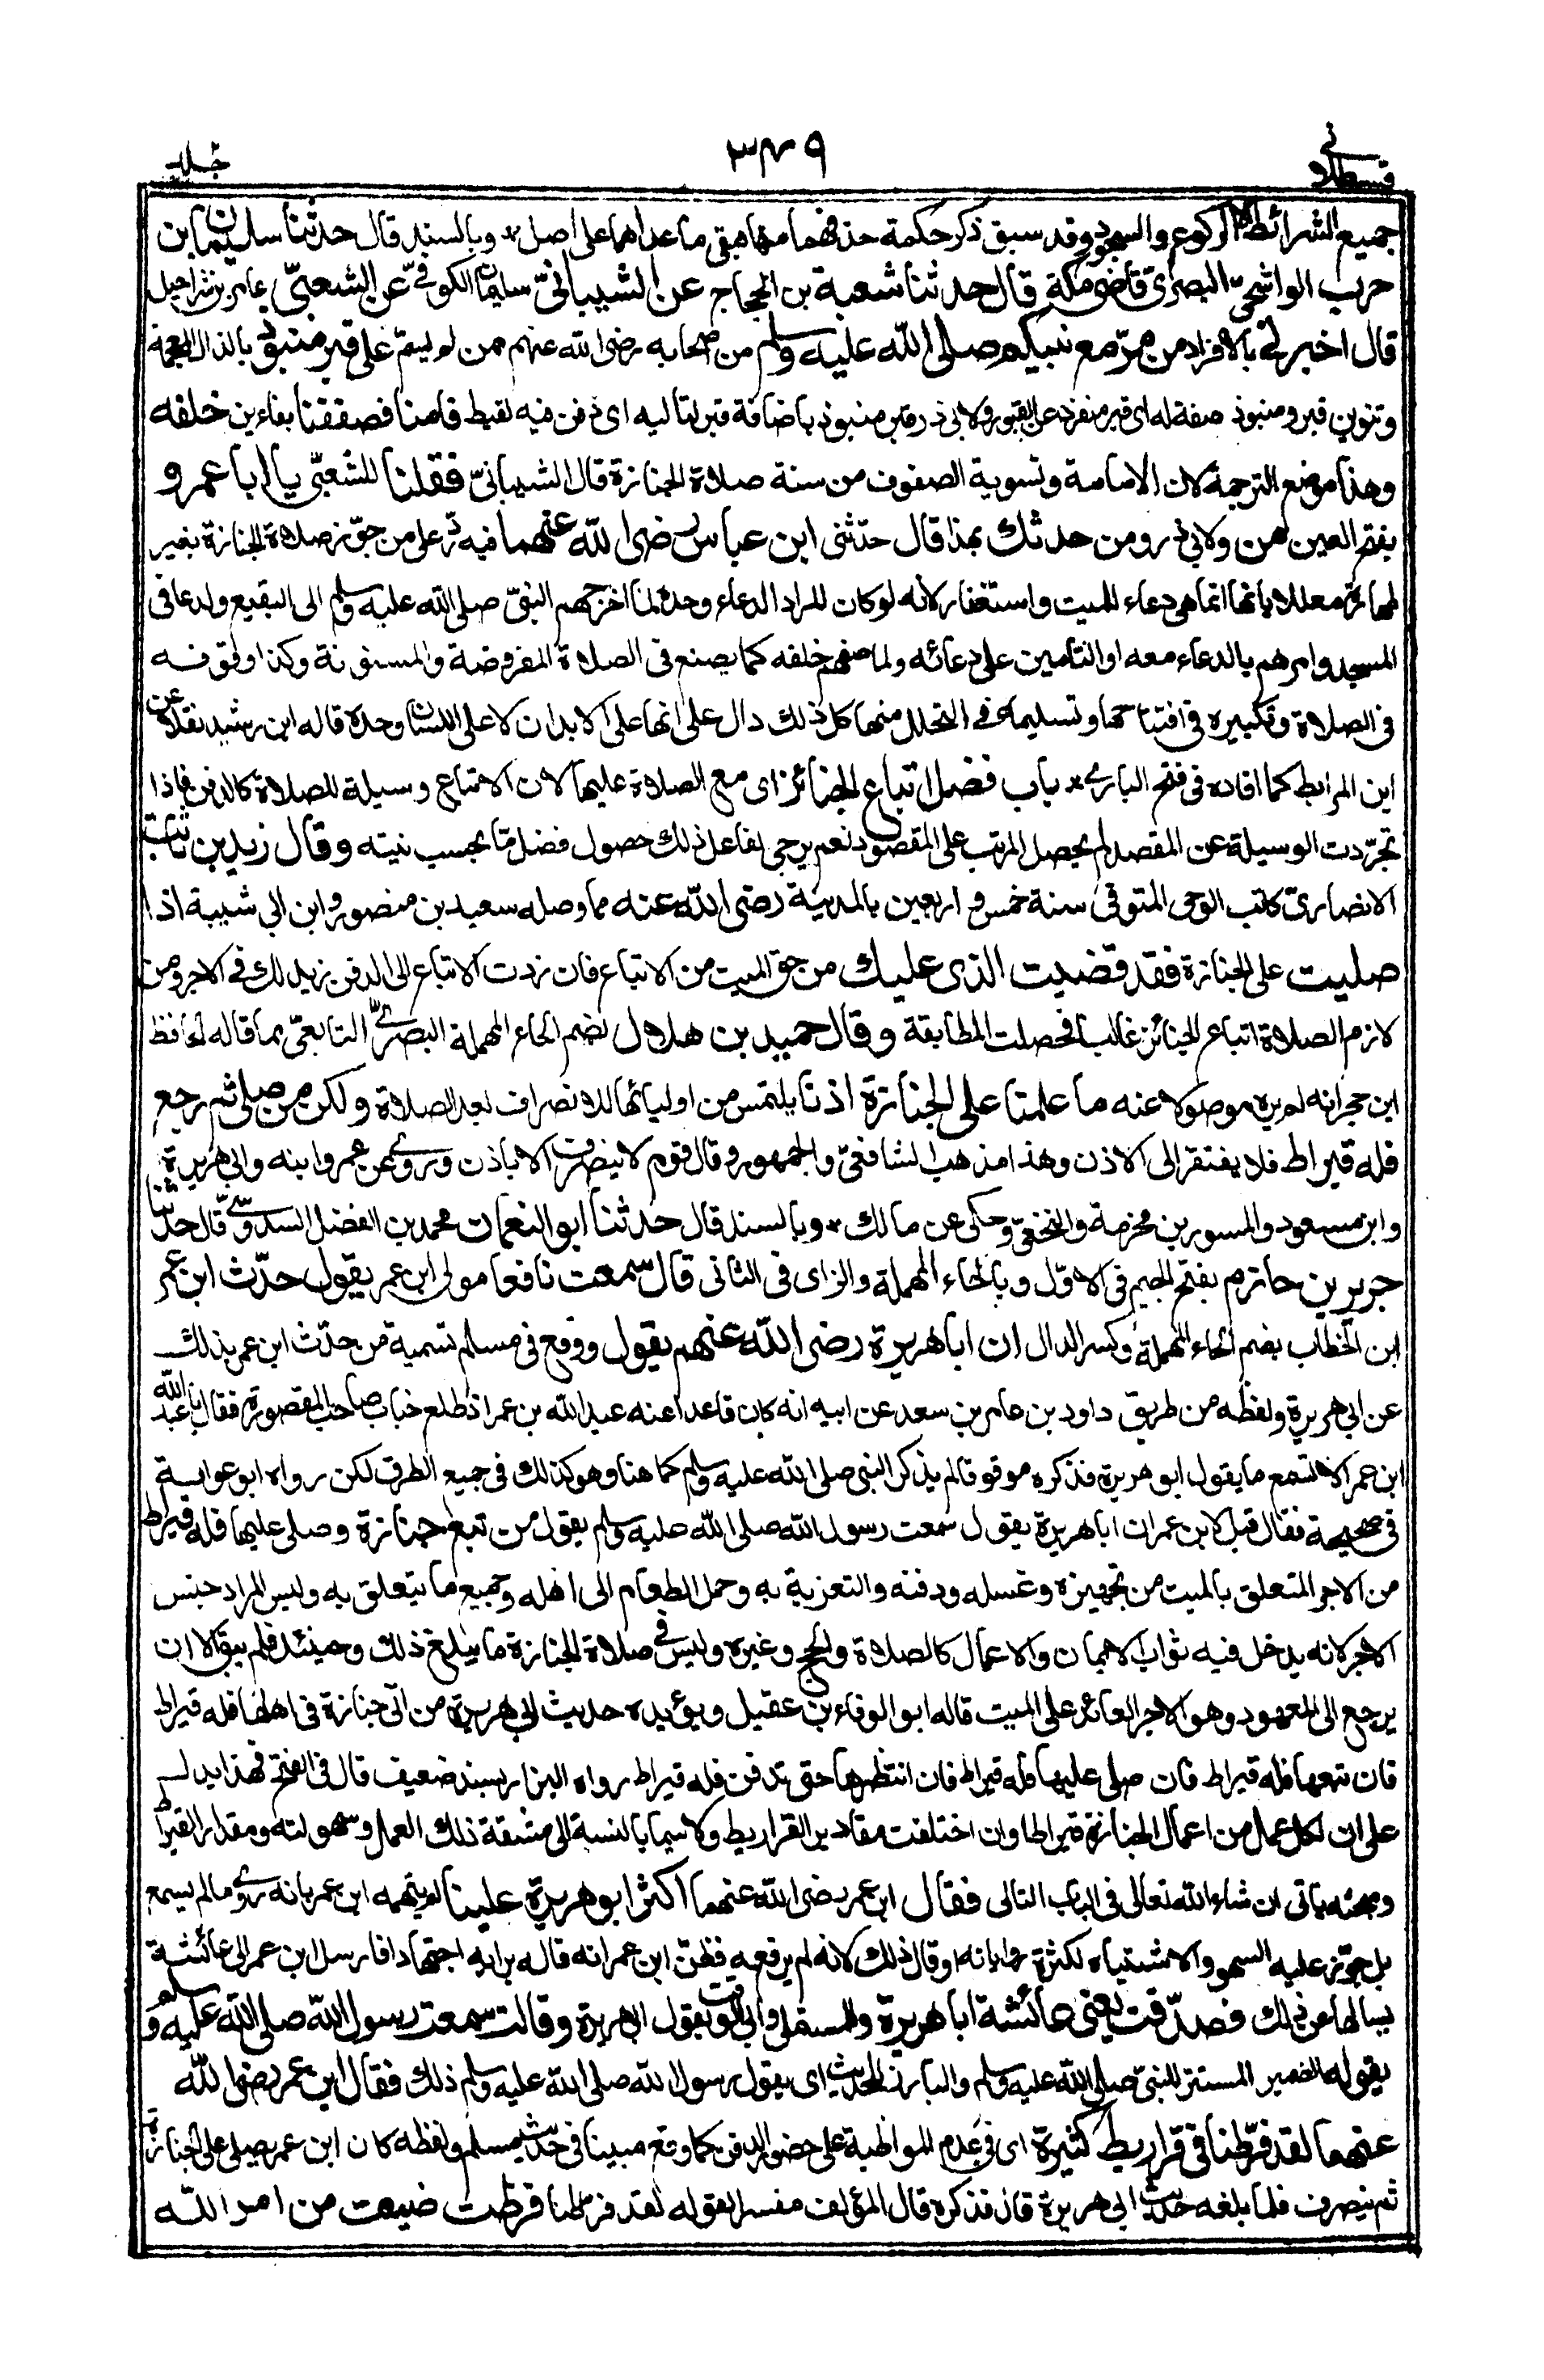 قسطلانی
٣٤٩
جلد
جميع الشرائط الا الركوع والسجود وقد سبق ذكر حكمة حذفهما منها فبقى ما عداهما على اصل * وبالسند قال حدثنا سليمان بن
حرب الواشحىّ البصرىّ قاضى مكة قال حدثنا شعبة بن الحجاج عن الشيبانىّ سليمان الكوفىّ عن الشعبىّ عامر بن شراحيل
قال اخبرنى بالافراد من مرّ مع نبيكم صلى الله عليه وسلم من اصحابه رضى الله عنهم ممن لم يسمّ على قبر منبوذ بالذال المعجمة
وتنوين قبر ومنبوذ صفة له اى قبر منفرد عن القبور ولابى ذر قبر منبوذ باضافة قبر لتاليه اى دفن فيه لقيط فامنا فصففنا بفاءين خلفه
وهذا موضع الترجمة لان الامامة وتسوية الصفوف من سنة صلاة الجنازة قال الشيبانىّ فقلنا للشعبىّ يا ابا عمرو
بفتح العين من ولابى ذر ومن حدثك بهذا قال حدّثنى ابن عباس رضى الله عنهما فيه ردّ على من جوّز صلاة الجنازة بغير
طهارة معللا بانها انما هى دعاء للميت واستغفار لانه لو كان المراد الدعاء وحده لما اخرجهم النبىّ صلى الله عليه وسلم الى البقيع ولدعا فى
المسجد وامرهم بالدعاء معه او التأمين على دعائه ولما صفهم خلفه كما يصنع فى الصلاة المفروضة والمسنونة وكذا وقوفه
فى الصلاة وتكبيره فى افتتاحها وتسليمه فى التحلل منها كل ذلك دال على انها على الابدان لا على اللسان وحده قاله ابن رشيد نقلا عن
ابن المرابط كما افاده فى فتح البارى * باب فضل اتباع الجنائز اى مع الصلاة عليها لان الاتباع وسيلة للصلاة كالدفن فاذا
تجرّدت الوسيلة عن المقصد لم يحصل المرتب على المقصود نعم يرجى لفاعل ذلك حصول فضل مّا بحسب نيته وقال زيد بن ثابت
الانصارىّ كاتب الوحى المتوفى سنة خمس واربعين بالمدينة رضى الله عنه مما وصله سعيد بن منصور وابن ابى شيبة اذا
صليت على الجنازة فقد قضيت الذى عليك من حق الميت من الاتباع فان زدت الاتباع الى الدفن زيد لك فى الاجر ومن
لازم الصلاة اتباع الجنائز غالبا فحصلت المطابقة وقال حميد بن هلال بضم الحاء المهملة البصرىّ التابعىّ مما قاله الحافظ
ابن حجر انه لم يره موصولا عنه ما علمنا على الجنازة اذنا يلتمس من اوليائها للانصراف بعد الصلاة ولكن من صلى ثم رجع
فله قيراط فلا يفتقر الى الاذن وهذا مذهب الشافعىّ والجمهور وقال قوم لا ينصرف الا باذن وروى عن عمر وابنه وابى هريرة
وابن مسعود والمسور بن مخرمة والنخعىّ وحكى عن مالك * وبالسند قال حدثنا ابو النعمان محمد بن الفضل السدوسىّ قال حدّثنا
جرير بن حازم بفتح الجيم فى الاوّل وبالحاء المهملة والزاى فى الثانى قال سمعت نافعا مولى ابن عمر يقول حدّث ابن عمر
ابن الخطاب بضم الحاء المهملة وكسر الدال ان ابا هريرة رضى الله عنهم يقول ووقع فى مسلم تسمية من حدّث ابن عمر بذلك
عن ابى هريرة ولفظه من طريق داود بن عامر بن سعد عن ابيه انه كان قاعدا عند عبد الله بن عمر اذ طلع خباب صاحب المقصورة فقال يا عبد الله
ابن عمر الا تسمع ما يقول ابو هريرة فذكره موقوفا لم يذكر النبى صلى الله عليه وسلم كما هنا وهو كذلك فى جميع الطرق لكن رواه ابو عوانة
فى صحيحه فقال قيل لابن عمر ان ابا هريرة يقول سمعت رسول الله صلى الله عليه وسلم يقول من تبع جنازة وصلى عليها فله قيراط
من الاجر المتعلق بالميت من تجهيزه وغسله ودفنه والتعزية به وحمل الطعام الى اهله وجميع ما يتعلق به وليس المراد جنس
الاجر لانه يدخل فيه ثواب الايمان والاعمال كالصلاة والحج وغيره وليس فى صلاة الجنازة ما يبلغ ذلك وحينئذ فلم يبق الا ان
يرجع الى المعهود وهو الاجر العائد على الميت قاله ابو الوفاء بن عقيل ويؤيده حديث ابى هريرة من اتى جنازة فى اهلها فله قيراط
فان تبعها فله قيراط فان صلى عليها فله قيراط فان انتظرها حتى تدفن فله قيراط رواه البزار بسند ضعيف قال فى الفتح فهذا يدل
على ان لكل عمل من اعمال الجنازة قيراطا وان اختلفت مقادير القراريط ولا سيما بالنسبة الى مشقة ذلك العمل وسهولته ومقدار القيراط
وبحثه ياتى ان شاء الله تعالى فى الباب التالى فقال ابن عمر رضى الله عنهما اكثر ابو هريرة علينا لم يتهمه ابن عمر بانه روى ما لم يسمع
بل جوّز عليه السهو والاشتباه لكثرة رواياته او قال ذلك لانه لم يرفعه فظنّ ابن عمر انه قاله برايه اجتهادا فارسل ابن عمر الى عائشة
يسالها عن ذلك فصدّقت يعنى عائشة ابا هريرة وللمستملى وابى الوقت بقول ابى هريرة وقالت سمعت رسول الله صلى الله عليه وسلم
يقوله الضمير المستتر للنبىّ صلى الله عليه وسلم والبارز للحديث اى يقول رسول الله صلى الله عليه وسلم ذلك فقال ابن عمر رضى الله
عنهما لقد فرّطنا فى قراريط كثيرة اى فى عدم المواظبة على حضور الدفن كما وقع مبينا فى حديث مسلم ولفظه كان ابن عمر يصلى على الجنازة
ثم ينصرف فلما بلغه حديث ابى هريرة قال فذكره قال المؤلف مفسرا لقوله لقد فرطنا فرطت ضيعت من امر الله